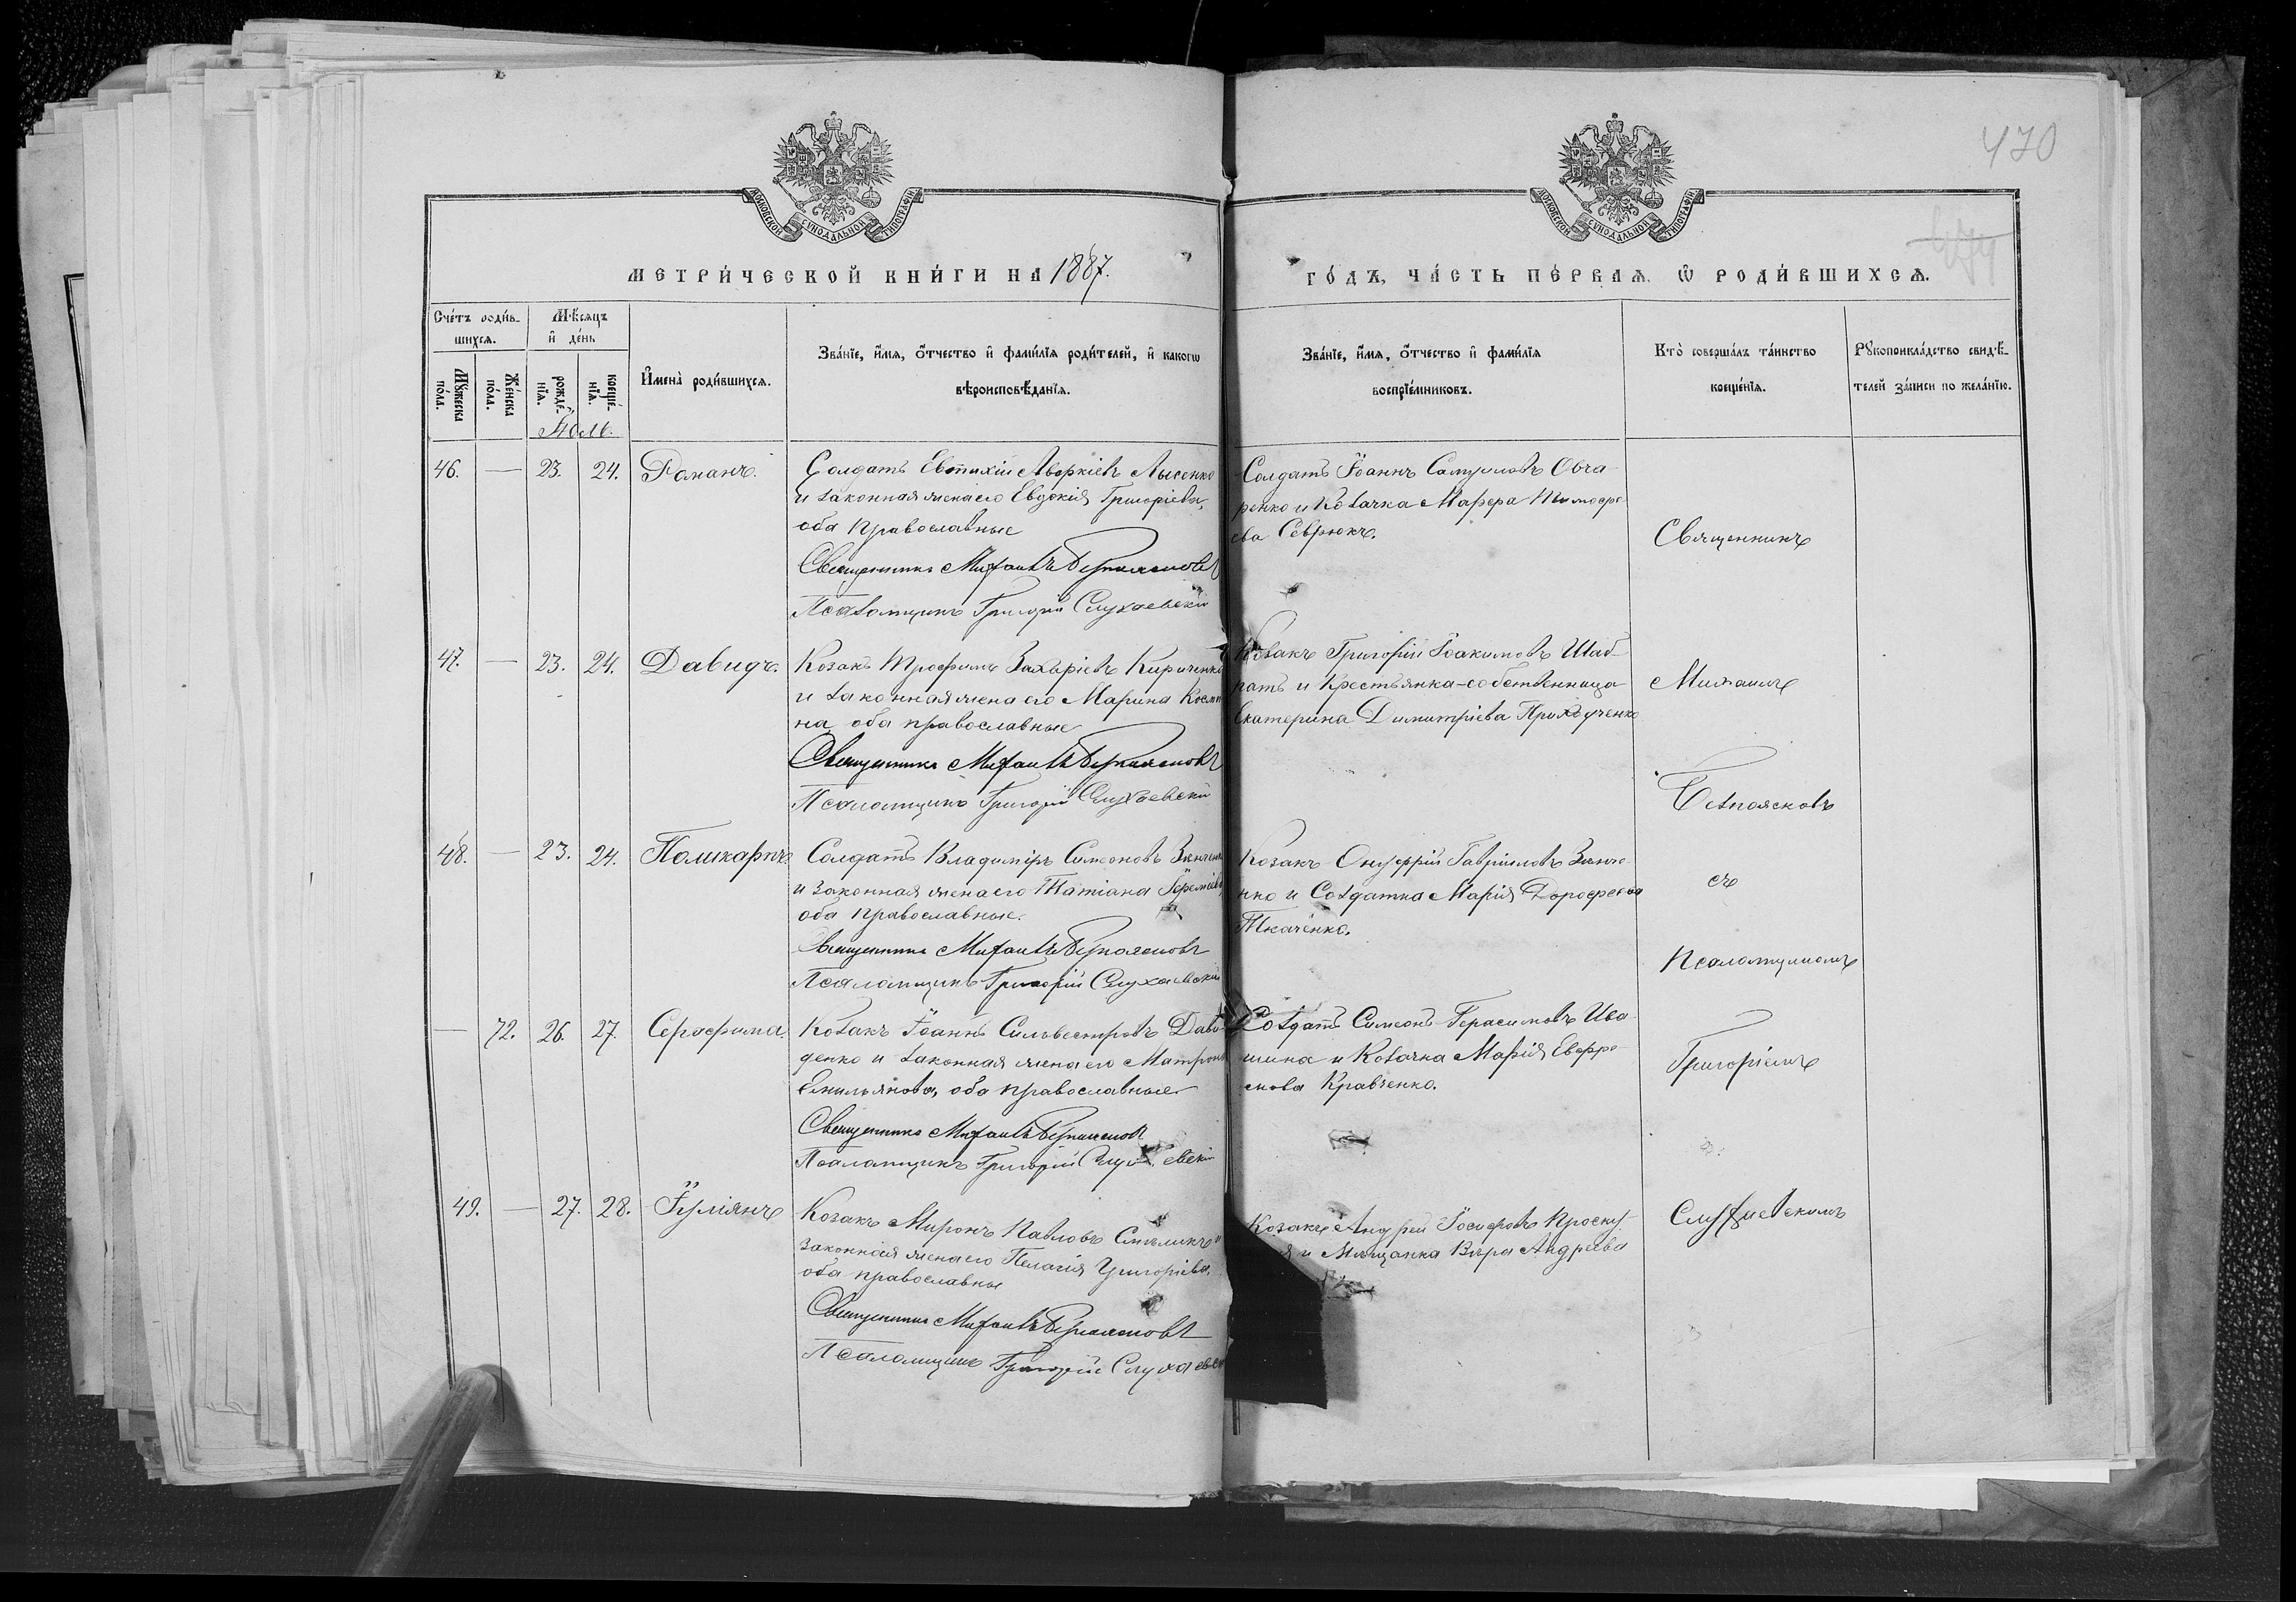 470
МОСКОВСКОЙ СѴНОДАЛЬНОЙ ТИПОГРАФІИ
МОСКОВСКОЙ СѴНОДАЛЬНОЙ ТИПОГРАФІИ
МЕТРИ́ЧЕСКОЙ КНИ́ГИ НА 1887.
ГО́ДЪ, ЧА́СТЬ ПЕ́РВАѦ, Ѿ РОДИ́ВШИХСѦ.
Сче́тъ роди́в-
шихсѧ.
Мѣ́сѧцъ
и҆ де́нь
Мꙋ́жеска по́ла.
Же́нска по́ла.
рожде́нїѧ.
креще́нїѧ.
И҆мена̀ роди́вшихсѧ.
Зва́нїе, и҆́мѧ, ѻ҆́тчество и҆ фами́лїѧ роди́телей, и҆ какогѡ
вѣроисповѣ́данїѧ.
Зва́нїе, и҆́мѧ, ѻ҆́тчество и҆ фами́лїѧ
воспрїе́мниковъ.
Кто̀ соверша́лъ та́инство
креще́нїѧ.
Рꙋкоприкла́дство свидѣ́-
телей за́писи по жела́нїю.
Іюль.
46. — 23. 24. Романъ.
Солдатъ Евтихій Аверкіевъ Лысенко
и законная жена его Евдокія Григоріева,
оба православные
Священникъ Михаилъ Безпоясковъ
Псаломщикъ Григорій Слухаевскій
Солдатъ Іоаннъ Самуиловъ Овча-
ренко и Козачка Марфа Тимофе-
ева Севрюкъ.
47. — 23. 24. Давидъ.
Козакъ Трофимъ Захаріевъ Кириченко
и законная жена его Марина Косми-
на, оба православные
Священникъ Михаилъ Безпоясковъ
Псаломщикъ Григорій Слухаевскій
Козакъ Григорій Іоакимовъ Шаб-
ратъ и Крестьянка-собственница
Екатерина Димитріева Приходченко
48. — 23. 24. Поликарпъ.
Солдатъ Владиміръ Симеоновъ Зинченко
и законная жена его Татіана Іереміева,
оба православные.
Священникъ Михаилъ Безпоясковъ
Псаломщикъ Григорій Слухаевскій
Козакъ Онуфрій Гавріиловъ Зинче-
нко и Солдатка Марія Дорофеева
Ткаченко.
— 72. 26. 27. Серафима.
Козакъ Іоаннъ Сильвестровъ Дави-
денко и законная жена его Матрона
Емильянова, оба православные
Священникъ Михаилъ Безпоясковъ
Псаломщикъ Григорій Слухаевскій
Солдатъ Симеонъ Герасимовъ Ива-
шина и Козачка Марія Евфре-
мова Кравченко.
49. — 27. 28. Іуліанъ
Козакъ Миронъ Павловъ Смѣликъ и
законная жена его Пелагія Григоріева,
оба православны
Священникъ Михаилъ Безпоясковъ
Псаломщикъ Григорій Слухаевскій
Козакъ Андрей Іосифовъ Проску-
я и Мѣщанка Вѣра Андреева
Священникъ
Михаилъ
Безпоясковъ
съ
Псаломщикомъ
Григоріемъ
Слухаевскимъ